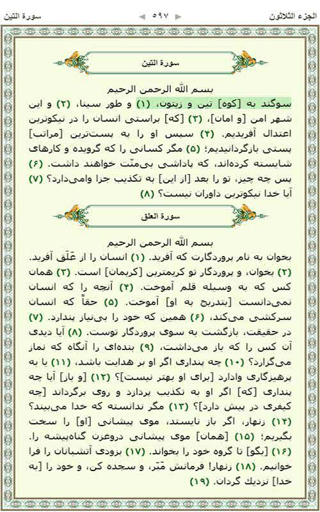 سورة التين ◄ ٥٩٧ ► الجزء الثلاثون
سورة التين
بسم الله الرحمن الرحيم
سوگند به [کوه] تین و زیتون، (۱) و طور سینا، (۲) و این
شهر امن [و امان]، (۳) [که] براستی انسان را در نیکوترین
اعتدال آفریدیم. (۴) سپس او را به پست‌ترین [مراتب]
پستی بازگردانیدیم؛ (۵) مگر کسانی را که گرویده و کارهای
شایسته کرده‌اند، که پاداشی بی‌منّت خواهند داشت. (۶)
پس چه چیز، تو را بعد [از این] به تکذیب جزا وامی‌دارد؟ (۷)
آیا خدا نیکوترین داوران نیست؟ (۸)
سورة العلق
بسم الله الرحمن الرحيم
بخوان به نام پروردگارت که آفرید. (۱) انسان را از عَلَق آفرید.
(۲) بخوان، و پروردگار تو کریمترین [کریمان] است. (۳) همان
کس که به وسیله قلم آموخت. (۴) آنچه را که انسان
نمی‌دانست [بتدریج به او] آموخت. (۵) حقاً که انسان
سرکشی می‌کند، (۶) همین که خود را بی‌نیاز پندارد. (۷)
در حقیقت، بازگشت به سوی پروردگار توست. (۸) آیا دیدی
آن کس را که باز می‌داشت، (۹) بنده‌ای را آنگاه که نماز
می‌گزارد؟ (۱۰) چه پنداری اگر او بر هدایت باشد، (۱۱) یا به
پرهیزگاری وادارد [برای او بهتر نیست]؟ (۱۲) [و باز] آیا چه
پنداری [که] اگر او به تکذیب پردازد و روی برگرداند [چه
کیفری در پیش دارد]؟ (۱۳) مگر ندانسته که خدا می‌بیند؟
(۱۴) زنهار، اگر باز نایستد، موی پیشانی [او] را سخت
بگیریم؛ (۱۵) [همان] موی پیشانی دروغزن گناه‌پیشه را.
(۱۶) [بگو] تا گروه خود را بخواند. (۱۷) بزودی آتشبانان را فرا
خوانیم. (۱۸) زنهار! فرمانش مَبَر، و سجده کن، و خود را [به
خدا] نزدیك گردان. (۱۹)